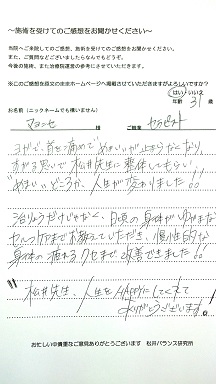 ～施術を受けてのご感想をお聞かせください～
当院へご来院してのご感想、施術を受けてのご感想をお聞かせください。
また、ご質問などございましたらなんでもどうぞ。
今後の施術、また治療院運営の参考にさせていただきます。
※このご感想を原文のままホームページへ掲載させていただきますがよろしいですか?
はい / いいえ
お名前(ニックネームでも構いません)
年齢 31 歳
マヨンセ 様 ご職業 セラピスト
ヨガで、首を痛めて めまいが止まらなくなり、
すがる思いで 松井先生に 整体してもらい、
めまいどころか、人生が変わりました!!
治りょうだけじゃなく、日頃の身体がゆがまない
セルフケアまでお教えしていただき、慢性的な
身体の疲れるクセまで 改善できました!!
松井先生、人生をHAPPYにしてくれて
ありがとうございます!
お忙しい中貴重なご意見ありがとうございます 松井バランス研究所